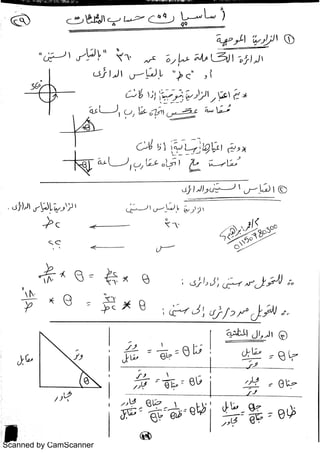 أساسيات حساب المثلثات
① الزاوية الموجهة
الدائرة الكاملة عبارة عن ٣٦٠° "بالقياس الستيني"
أو "٢ط" بالقياس الدائرى
٣٦٠°
ويتم اعتبار الزاوية موجبة إذا كانت
مقاسة عكس اتجاه عقارب الساعة
θ
ويتم اعتبارها سالبة إذا كانت
مقاسة مع اتجاه عقارب الساعة
θ
② القياس الستينى والدائرى
الزاوية بالقياس الستينى الزاوية بالقياس الدائرى
٣٦٠ ← ٢ط
س ← ؟؟
01150780300
∴ للتحويل من ستينى إلى دائرى : θ × ٢ط/٣٦٠ = θ × ط/١٨٠
∴ للتحويل من دائرى إلى ستينى : θ × ٣٦٠/٢ط = θ × ١٨٠/ط
③ الدوال المثلثية
جاθ = مقابل/وتر
قتاθ = ١/جاθ = وتر/مقابل
جتاθ = مجاور/وتر
قاθ = ١/جتاθ = وتر/مجاور
ظاθ = جا/جتا = مقابل/مجاور
ظتاθ = ١/ظاθ = جتاθ/جاθ = مجاور/مقابل
مقابل
وتر
θ
مجاور
Scanned by CamScanner